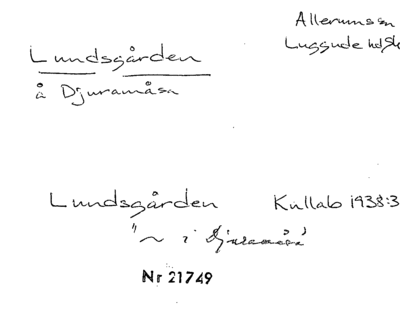 Allerums sn
Luggude hd Sk
Lundsgården
å Djuramåsa
Lundsgården Kullab 1938:3
"~ i Djuramåsa"
Nr 21749